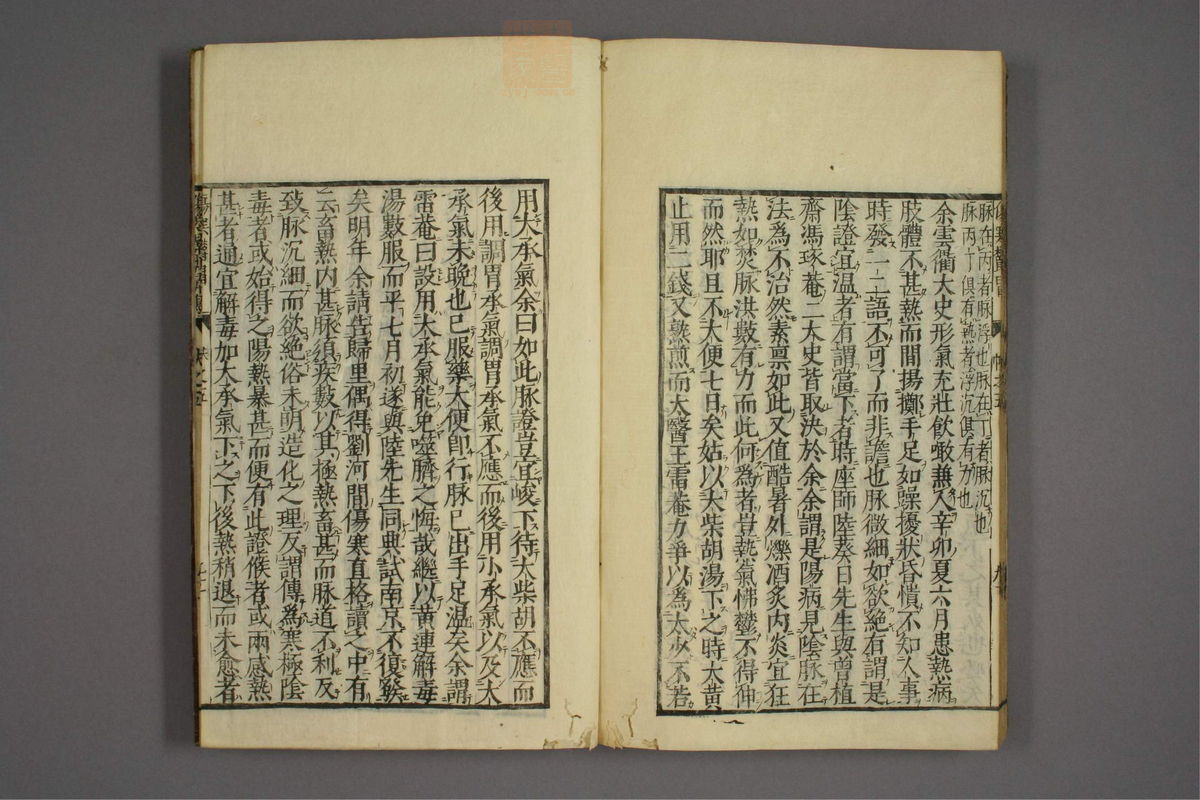 脉在丙者脉浮也脉在丁者脉沉也
脉丙丁俱有熱者浮沉俱有力也
余雲衢大史形氣充壯飲噉兼人辛卯夏六月患熱病
肢體不甚熱而間揚擲手足如躁擾狀昏憒不知人事
時發一二語不可了而非譫也脉微細如欲絶有謂是
陰證宜温者有謂當下者時座師陸葵日先生與曾植
齋馮琢菴二大史皆取決於余余謂是陽病見陰脉在
法爲不治然素禀如此又值酷暑外爍酒炙內炎宜狂
熱如焚脉洪數有力而此何爲者豈熱氣怫鬱不得伸
而然耶且不大便七日矣姑以大柴胡湯下之時大黃
止用二錢又熟煎而太醫王雷菴力爭以為太少不若
用大承氣余曰如此脉證豈宜峻下待大柴胡不應而
後用調胃承氣調胃承氣不應而後用小承氣以及大
承氣未晚也已服藥大便即行脉已出手足温矣余謂
雷菴曰設用大承氣能免噬臍之悔哉繼以黃連解毒
湯數服而平七月初遂與陸先生同典試南京不復發
矣明年余請告歸里偶得劉河間傷寒直格讀之中有
云畜熱內甚脉須疾數以其極熱畜甚而脉道不利反
致脉沉細而欲絶俗未明造化之理反謂傳為寒極陰
毒者或始得之陽熱暴甚而便有此證候者或兩感熱
甚者通宜解毒加大承氣下之下後熱稍退而未愈者